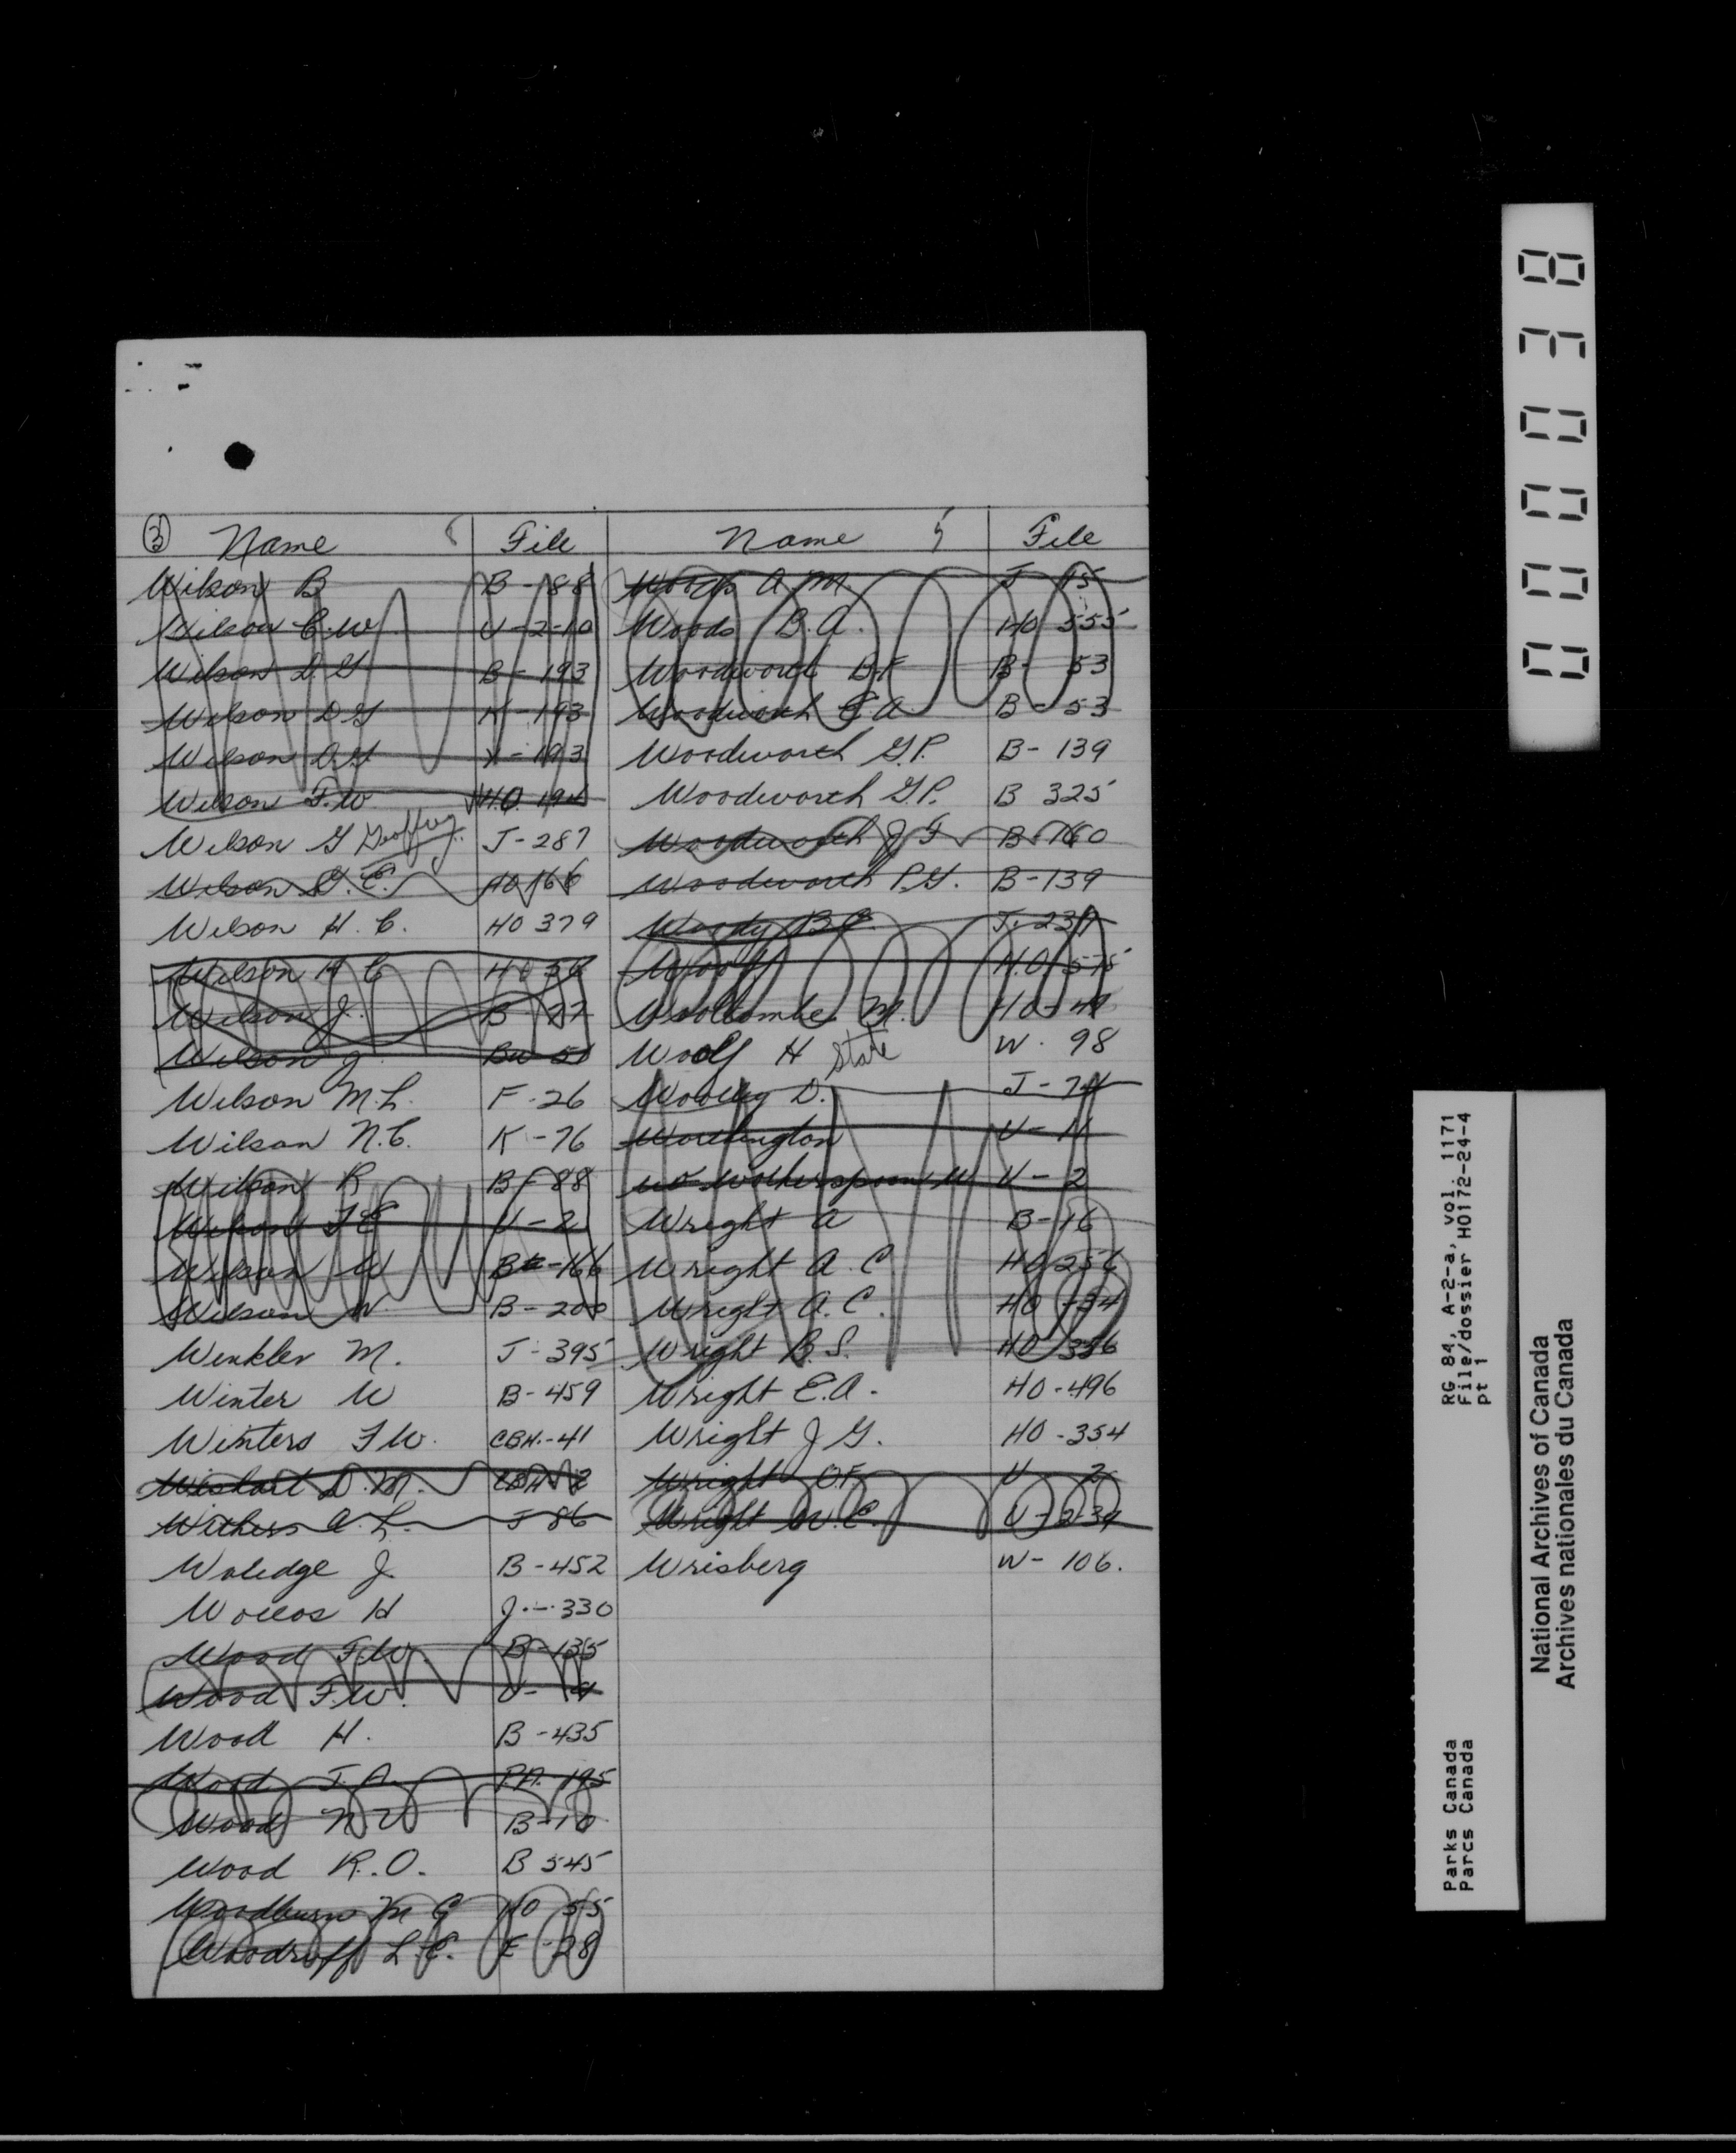 ③ Name File Name 5 File
Wilson B B - 88 Woods A M J 15
Wilson C.W U-2-10 Woods B.A. HO 555
Wilson D.G B - 193 Woodworth B.F B- 53
Wilson D G K - 193 Woodworth E A B - 53
Wilson D.G X - 193 Woodworth G.P. B- 139
Wilson F.W H.O. 194 Woodworth G.P. B 325
Wilson G Geoffrey. J-287 Woodworth J F B-160
Wilson G.E. HO 166 Woodworth P.G. B-139
Wilson H.C. HO 379 Woody B J. 237
Wilson H C HO 56 Woolf H.O. 575
Wilson J. B 77 Woolcombe M. HO-49
Wilson J BW 51 Woolf H State W. 98
Wilson M.L. F-26 Woolley D. J-74
Wilson N.C. K-76 Worthington U- 11
Wilson R B-88 Wotherspoon W U-2
Wilson F E U-2 Wright A B-16
Wilson W B-166 Wright A.C HO 256
Wilson W B-200 Wright A.C. HO -34
Winkler M. J-395 Wright B.S. HO 336
Winter W B-459 Wright E.A. HO-496
Winters F W. CBH.-41 Wright J G. HO-354
Wishart D.M. CBH 2 Wright O.F. U 2
Withers A.L. J 86 Wright W.E. U-2-34
Woledge J. B-452 Wrisberg W- 106.
H J.-330
Wood F.W. B-135
Wood F.W. U-
Wood H. B-435
Wood J.A. PA.-195
Wood N W B-10
Wood R.O. B 545
Woodburn M G HO 55
Woodruff L.E. E-28
00000038
RG 84, A-2-a, vol. 1171
File/dossier H0172-24-4
pt 1
Parks Canada
Parcs Canada
National Archives of Canada
Archives nationales du Canada